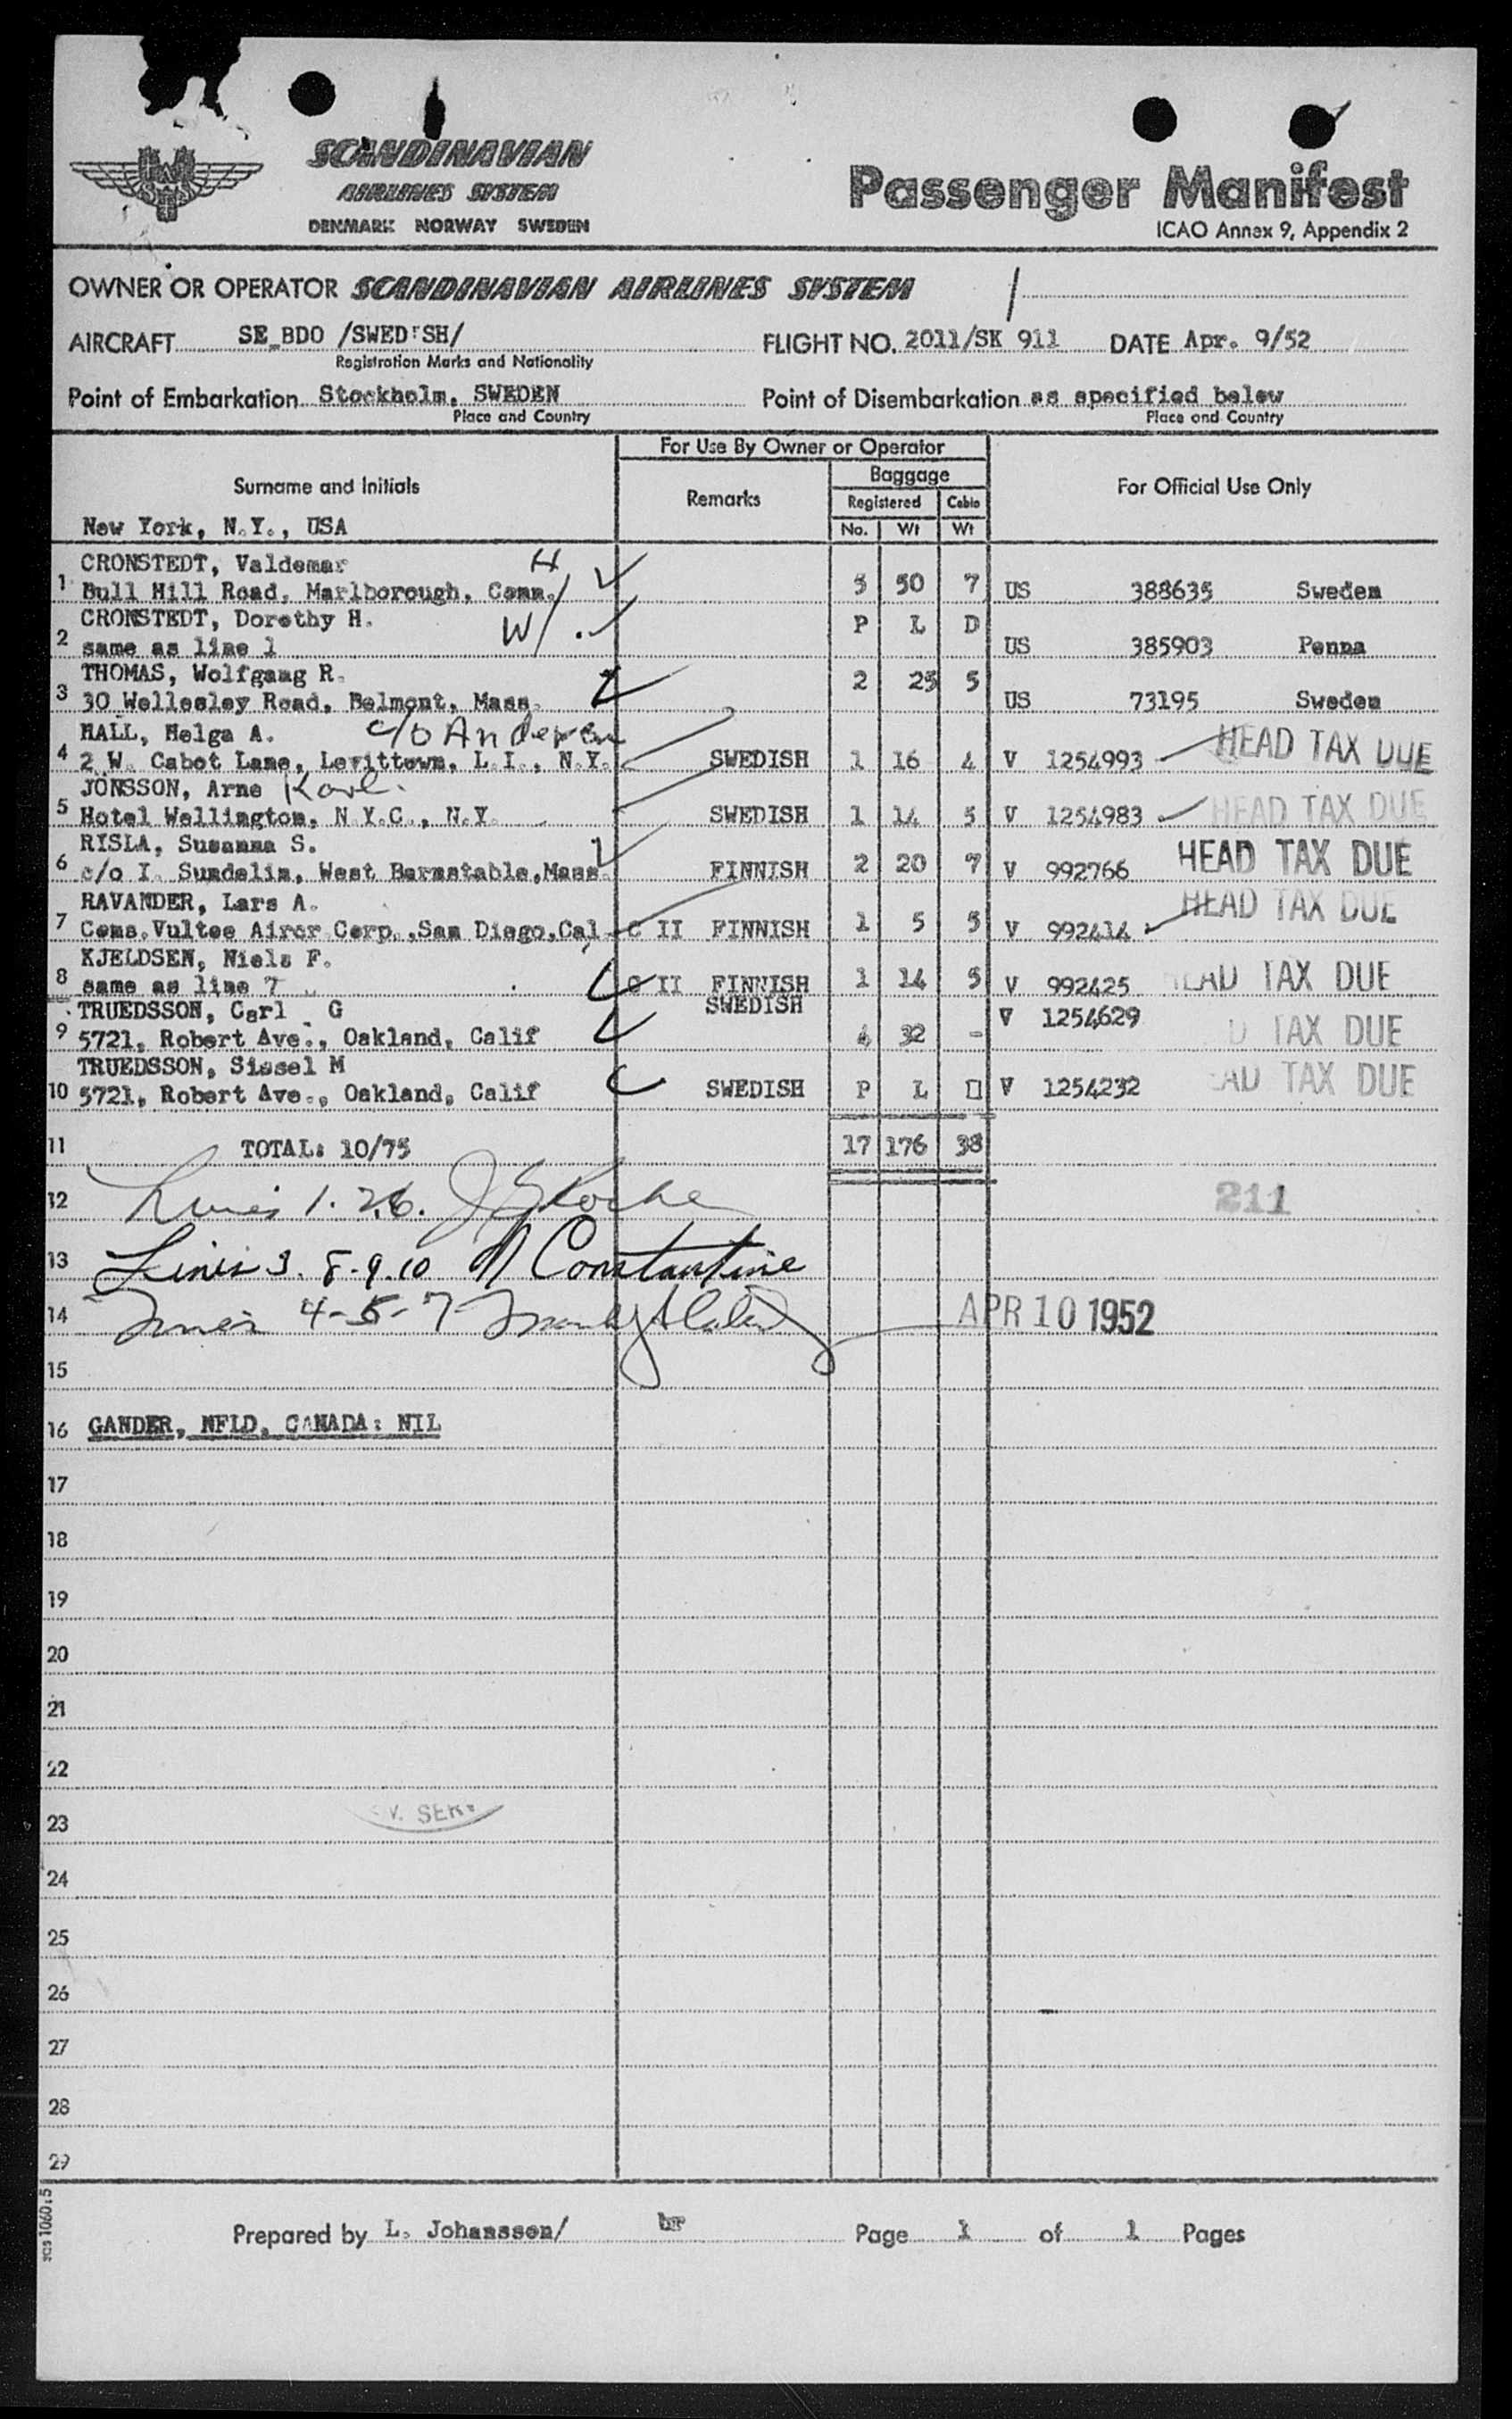 SCANDINAVIAN
AIRLINES SYSTEM
DENMARK NORWAY SWEDEN
Passenger Manifest
ICAO Annex 9, Appendix 2
OWNER OR OPERATOR SCANDINAVIAN AIRLINES SYSTEM
AIRCRAFT SE-BDO /SWEDISH/ FLIGHT NO. 2011/SK 911 DATE Apr. 9/52
Registration Marks and Nationality
Point of Embarkation Stockholm, SWEDEN Point of Disembarkation as specified below
Place and Country Place and Country
For Use By Owner or Operator
Surname and Initials Remarks Baggage For Official Use Only
Registered Cabin
New York, N.Y., USA No. Wt Wt
CRONSTEDT, Valdemar H
1 Bull Hill Road, Marlborough, Conn. 3 50 7 US 388635 Sweden
CRONSTEDT, Dorothy H. W/
2 same as line 1 P L D US 385903 Penna
THOMAS, Wolfgang R.
3 30 Wellesley Road, Belmont, Mass. 2 25 5 US 73195 Sweden
HALL, Helga A. c/o
4 2 W. Cabot Lane, Levittown, L.I., N.Y. SWEDISH 1 16 4 V 1254993 HEAD TAX DUE
JONSSON, Arne Karl
5 Hotel Wellington, N.Y.C., N.Y. SWEDISH 1 14 5 V 1254983 HEAD TAX DUE
RISLA, Susanna S.
6 c/o I. Sundelin, West Barnstable, Mass. FINNISH 2 20 7 V 992766 HEAD TAX DUE
RAVANDER, Lars A.
7 Cons.Vultee Aircr Corp.,San Diego,Cal C II FINNISH 1 5 5 V 992414 HEAD TAX DUE
KJELDSEN, Niels F.
8 same as line 7 C II FINNISH 1 14 5 V 992425 HEAD TAX DUE
TRUEDSSON, Carl G SWEDISH V 1254629
9 5721, Robert Ave., Oakland, Calif 4 32 - D TAX DUE
TRUEDSSON, Sissel M
10 5721, Robert Ave., Oakland, Calif SWEDISH P L D V 1254232 AD TAX DUE
11 TOTAL: 10/75 17 176 38
12 Lines 1. 2.6. 211
13 Lines 3. 8-9.10 Constantine
14 Lines 4-5-7 APR 10 1952
15
16 GANDER, NFLD, CANADA: NIL
17
18
19
20
21
22
23 V. SERV
24
25
26
27
28
29
sas 1060:5
Prepared by L. Johansson/ br Page 1 of 1 Pages